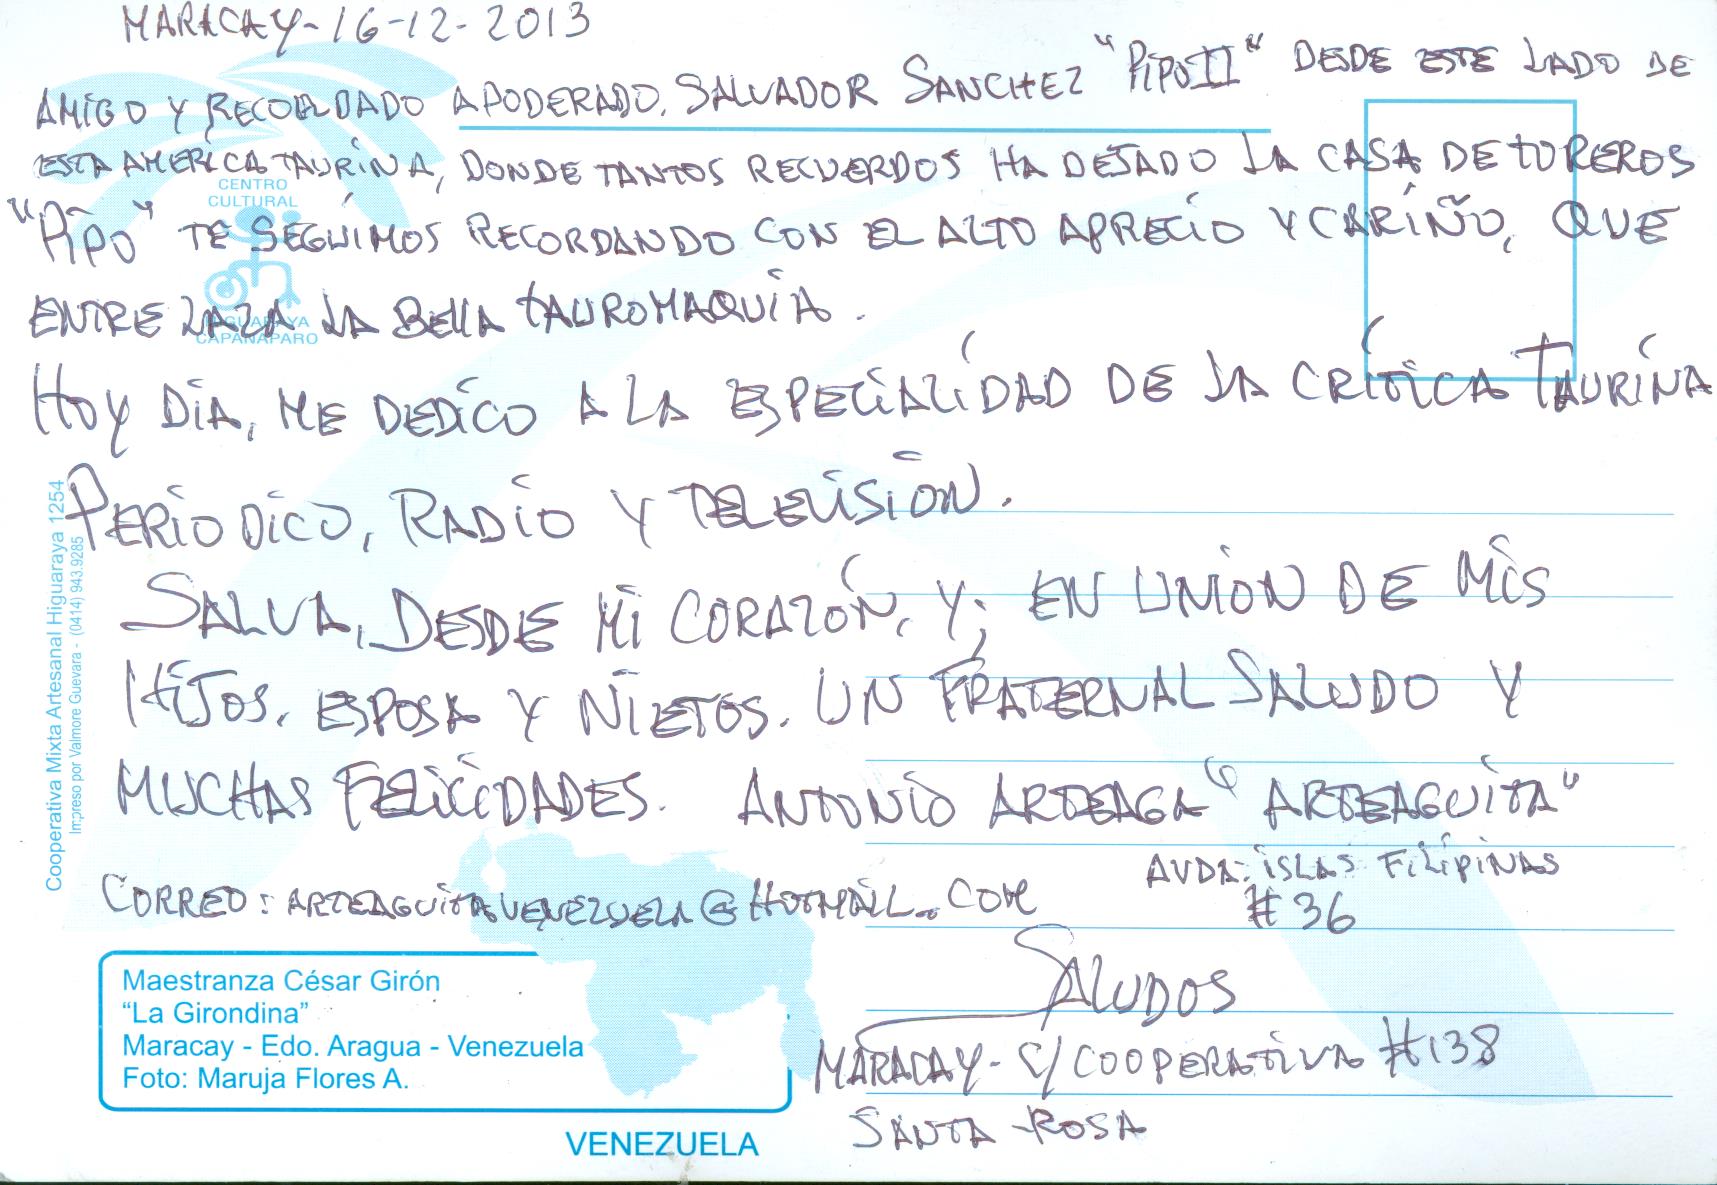 MARACAY-16-12-2013
AMIGO Y RECORDADO APODERADO, SALVADOR SANCHEZ "PIPO II" DESDE ESTE LADO DE
ESTA AMERICA TAURINA, DONDE TANTOS RECUERDOS HA DEJADO LA CASA DE TOREROS
"PIPO" TE SEGUIMOS RECORDANDO CON EL ALTO APRECIO Y CARIÑO, QUE
ENTRE LAZA LA BELLA TAUROMAQUIA.
HOY DIA, ME DEDICO A LA ESPECIALIDAD DE LA CRÍTICA TAURINA
PERIODICO, RADIO Y TELEVISION.
SALVA, DESDE MI CORAZÓN, Y; EN UNION DE MIS
HIJOS, ESPOSA Y NIETOS. UN FRATERNAL SALUDO Y
MUCHAS FELICIDADES. ANTONIO ARTEAGA "ARTEAGUITA"
AVDA: ISLAS FILIPINAS
# 36
CORREO: ARTEAGUITAVENEZUELA@HOTMAIL.COM
SALUDOS
MARACAY- C/ COOPERATIVA #138
SANTA-ROSA
CENTRO
CULTURAL
HIGUARAYA
CAPANAPARO
Cooperativa Mixta Artesanal Higuaraya 1254
Impreso por Valmore Guevara - (0414) 943.9285
Maestranza César Girón
“La Girondina”
Maracay - Edo. Aragua - Venezuela
Foto: Maruja Flores A.
VENEZUELA